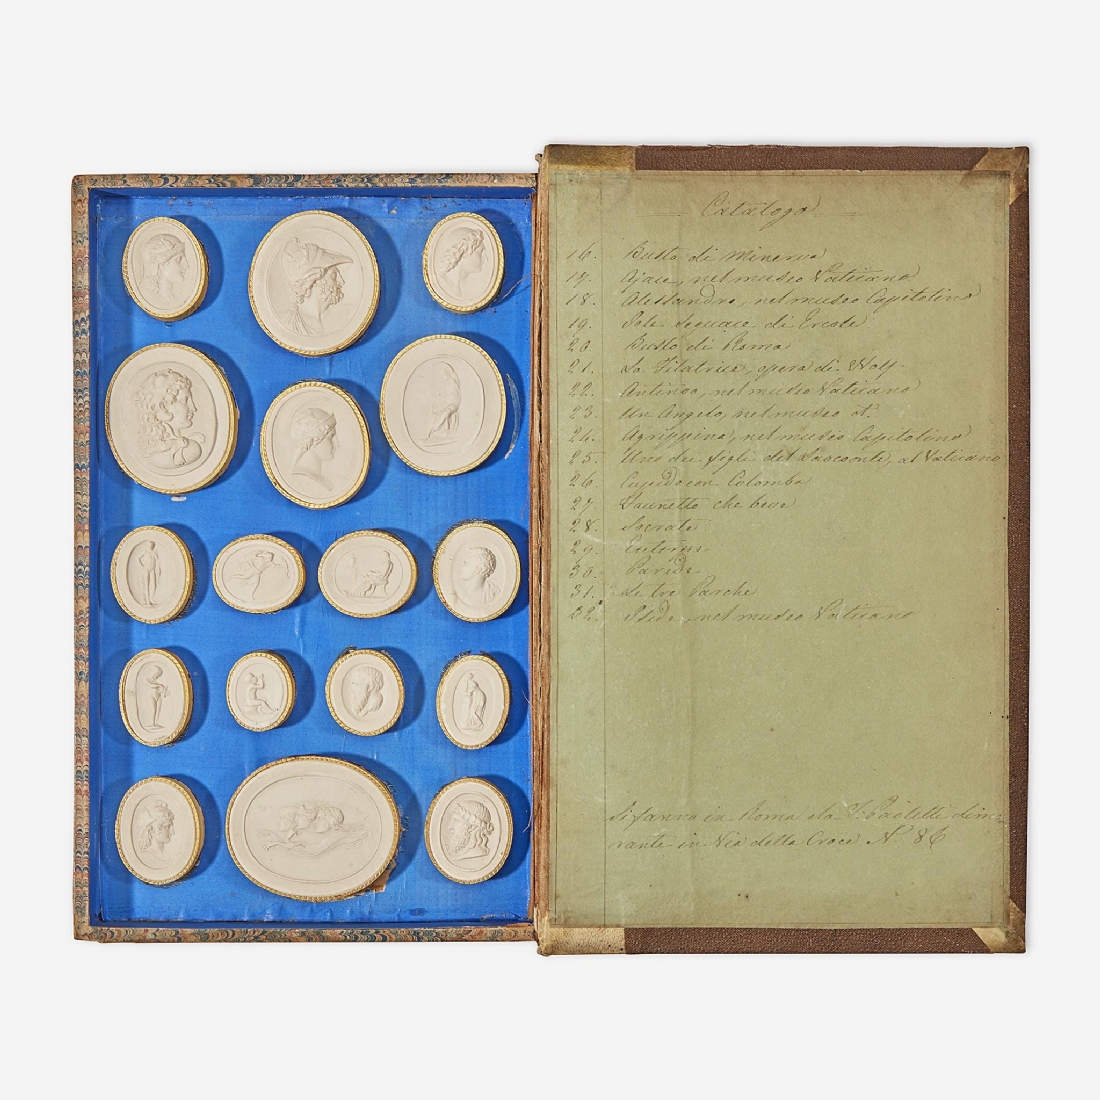 Catalogo
16. Busto di Minerva
17. Ajace, nel museo Vaticano
18. Alessandro, nel museo Capitolino
19. Iole seguace di Ercole
20. Busto di Roma
21. La Filatrice, opera di
22. Antinoo, nel museo Vaticano
23. Un Angelo, nel museo
24. Agrippina, nel museo Capitolino
25. Uno dei figli del Laocoonte, al Vaticano
26. Cupido con Colomba
27. Faunetto che beve
28. Socrate
29.
30. Paride
31. Le tre Parche
32. nel museo Vaticano
Si fanno in Roma da Paoletti dimo-
rante in Via della Croce N. 86